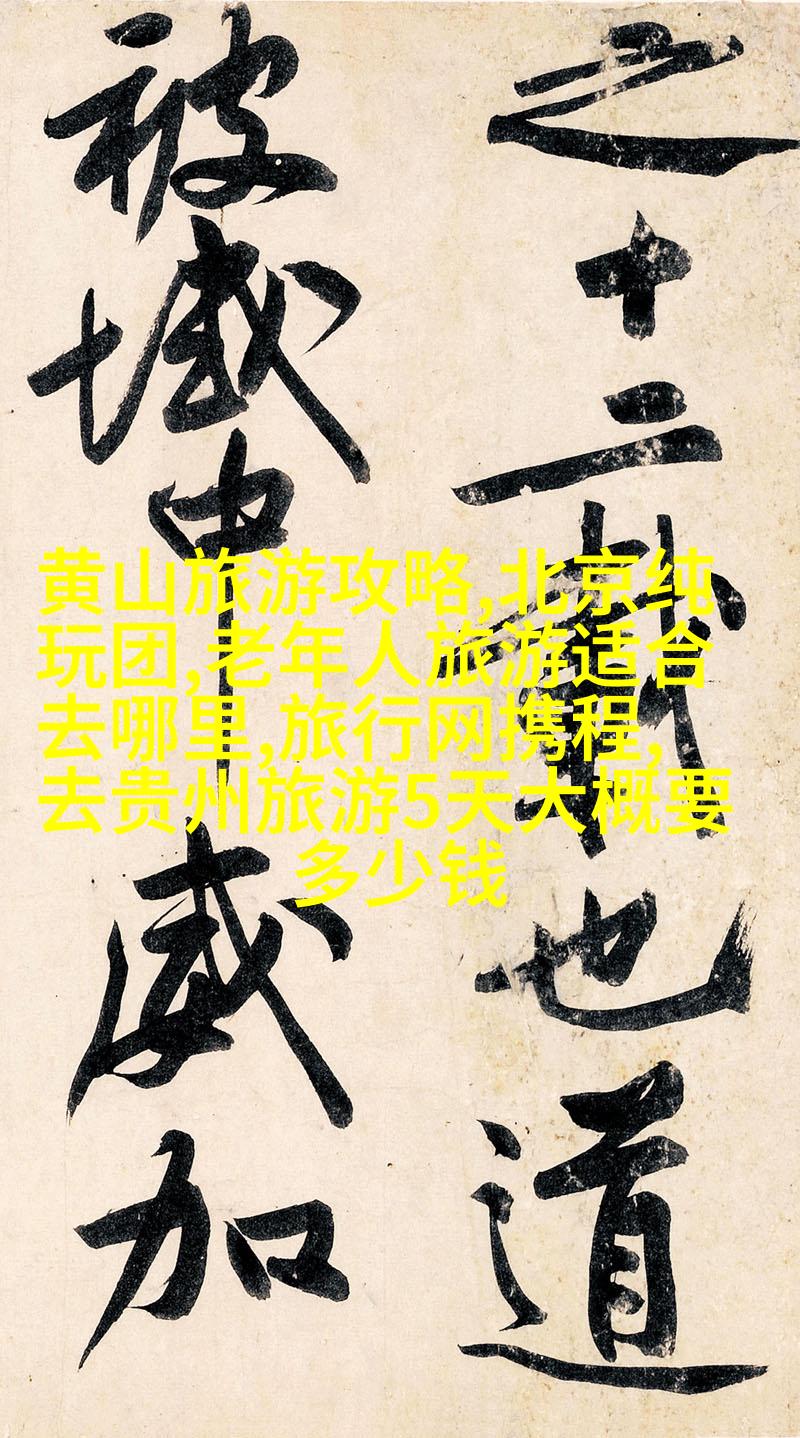 之十二載也道
被域中威加
黄山旅游攻略,北京纯
玩团,老年人旅游适合
去哪里,旅行网携程,
去贵州旅游5天大概要
多少钱